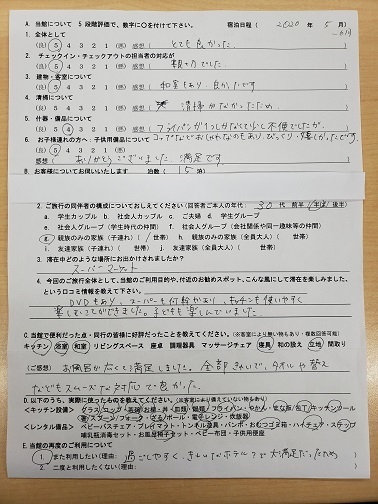 A. 当館について 5 段階評価で、数字に〇を付けて下さい。 宿泊日程( 2020 年 5 月)
1. 全体として
(良) 5 4 3 2 1 (悪) 感想( とても良かった )
2. チェックイン・チェックアウトの担当者の対応が
(良) 5 4 3 2 1 (悪) 感想( 親切でした )
3. 建物・客室について
(良) 5 4 3 2 1 (悪) 感想( 和室もあり、良かったです )
4. 清掃について
(良) 5 4 3 2 1 (悪) 感想( 清掃がなかったため )
5. 什器・備品について
(良) 5 4 3 2 1 (悪) 感想( フライパンが1つしかなくて少し不便でしたが )
6. お子様連れの方へ・子供用備品について
(良) 5 4 3 2 1 (悪)
感想( ありがとうございました 満足です )
B. お客様についてお伺いいたします 泊数( 15 泊)
2. ご旅行の同伴者の構成についておしえてください(回答者ご本人の年代: 30 代 前半・半ば・後半)
a. 学生カップル b. 社会人カップル c. ご夫婦 d. 学生グループ
e. 社会人グループ(学生時代の仲間) f. 社会人グループ(会社関係や同一趣味等の仲間)
g. 親族のみの家族(子連れ)( 1 世帯) h. 親族のみの家族(全員大人)( 世帯)
i. 友達家族(子連れ)( 世帯) j. 友達家族(全員大人)( 世帯)
3. 滞在中どのような場所にお出かけされましたか?
スーパーマーケット
4. 今回のご旅行全体として、当館のご利用目的や、付近のお勧めスポット、こんな風にして滞在を楽しみました、
という口コミ情報を教えて下さい。
DVDもあり、スーパーも何軒もあり、キッチンも使いやすく
楽しむことができました。子どもも楽しんでいました
C. 当館で便利だった点・同行の皆様に好評だったことを教えてください。
キッチン 浴室 和室 リビングスペース 座卓 調理器具 マッサージチェア 寝具 和の設え 立地 間取り
(ご感想) お風呂が広くて満足しました。全部きれいで、タオルや替え
などもスムーズな対応で良かった。
D. 以下のうち、実際に使ったものを教えてください。
<キッチン設備> グラス・コップ・茶碗・お椀・丼・皿類・鍋類・フライパン・やかん・まな板・包丁・キッチンツール
箸・スプーン・フォーク・ざる・ボール・電子レンジ・炊飯器
<レンタル備品> ベビーバスチェア・プレイマット・トンネル遊具・バンボ・おむつゴミ箱・ハイチェア・ステップ
哺乳瓶消毒セット・お風呂椅子セット・ベビー布団・子供用便座
E. 当館の再度のご利用について
1. また利用したい(理由: 過ごしやすく、きれいなホテルで大満足だったため )
2. 二度と利用したくない(理由: )